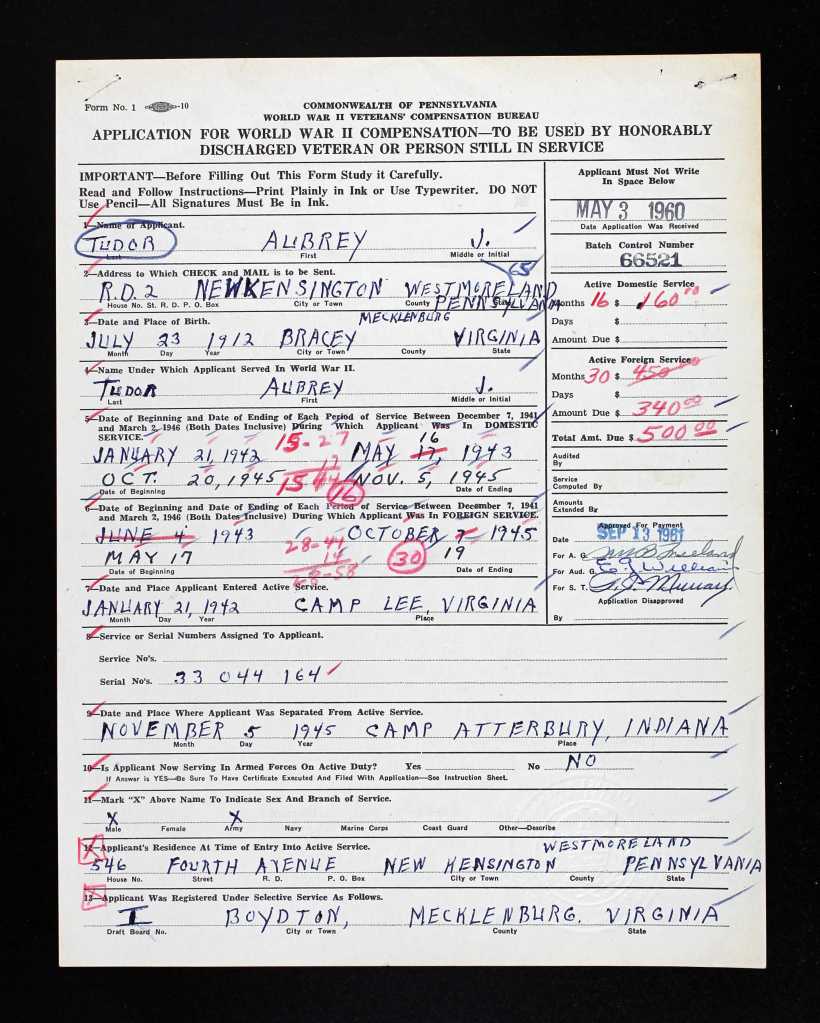 Form No. 1 -10
COMMONWEALTH OF PENNSYLVANIA
WORLD WAR II VETERANS' COMPENSATION BUREAU
APPLICATION FOR WORLD WAR II COMPENSATION—TO BE USED BY HONORABLY
DISCHARGED VETERAN OR PERSON STILL IN SERVICE
IMPORTANT—Before Filling Out This Form Study it Carefully.
Read and Follow Instructions—Print Plainly in Ink or Use Typewriter. DO NOT
Use Pencil—All Signatures Must Be in Ink.
Applicant Must Not Write
In Space Below
MAY 3 1960
Date Application Was Received
Batch Control Number
66521
Active Domestic Service
Months 16 $ 160 00
Days $
Amount Due $
Active Foreign Service
Months 30 $ 450 00
Days $
Amount Due $ 340 00
Total Amt. Due $ 500 00
Audited
By
Service
Computed By
Amounts
Extended By
Approved For Payment
Date SEP 13 1961
For A. G.
For Aud. G. E. J. Williams
For S. T. A. J. Murray
Application Disapproved
By
1—Name of Applicant.
TUDOR AUBREY J.
Last First Middle or Initial
65
2—Address to Which CHECK and MAIL is to be Sent.
R.D. 2 NEW KENSINGTON WESTMORELAND PENNSYLVANIA
House No. St. R. D. P. O. Box City or Town County State
3—Date and Place of Birth.
MECKLENBURG
JULY 23 1912 BRACEY VIRGINIA
Month Day Year City or Town County State
4—Name Under Which Applicant Served In World War II.
TUDOR AUBREY J.
Last First Middle or Initial
5—Date of Beginning and Date of Ending of Each Period of Service Between December 7, 1941
and March 2, 1946 (Both Dates Inclusive) During Which Applicant Was In DOMESTIC
SERVICE.
15-27 16
JANUARY 21, 1942 MAY 17, 1943
17
OCT. 20, 1945 15 44 NOV. 5, 1945
Date of Beginning 16 Date of Ending
6—Date of Beginning and Date of Ending of Each Period of Service Between December 7, 1941
and March 2, 1946 (Both Dates Inclusive) During Which Applicant Was In FOREIGN SERVICE.
JUNE 4, 1943 OCTOBER 7 1945
28-44
14
28-58
30
MAY 17 19
Date of Beginning Date of Ending
7—Date and Place Applicant Entered Active Service.
JANUARY 21, 1942 CAMP LEE, VIRGINIA
Month Day Year Place
8—Service or Serial Numbers Assigned To Applicant.
Service No's.
Serial No's. 33 044 164
9—Date and Place Where Applicant Was Separated From Active Service.
NOVEMBER 5 1945 CAMP ATTERBURY, INDIANA
Month Day Year Place
10—Is Applicant Now Serving In Armed Forces On Active Duty? Yes No NO
If Answer is YES—Be Sure To Have Certificate Executed And Filed With Application—See Instruction Sheet.
11—Mark "X" Above Name To Indicate Sex And Branch of Service.
X X
Male Female Army Navy Marine Corps Coast Guard Other—Describe
12—Applicant's Residence At Time of Entry Into Active Service.
WESTMORELAND
546 FOURTH AVENUE NEW KENSINGTON PENNSYLVANIA
House No. Street R. D. P. O. Box City or Town County State
13—Applicant Was Registered Under Selective Service As Follows.
I BOYDTON, MECKLENBURG, VIRGINIA
Draft Board No. City or Town County State